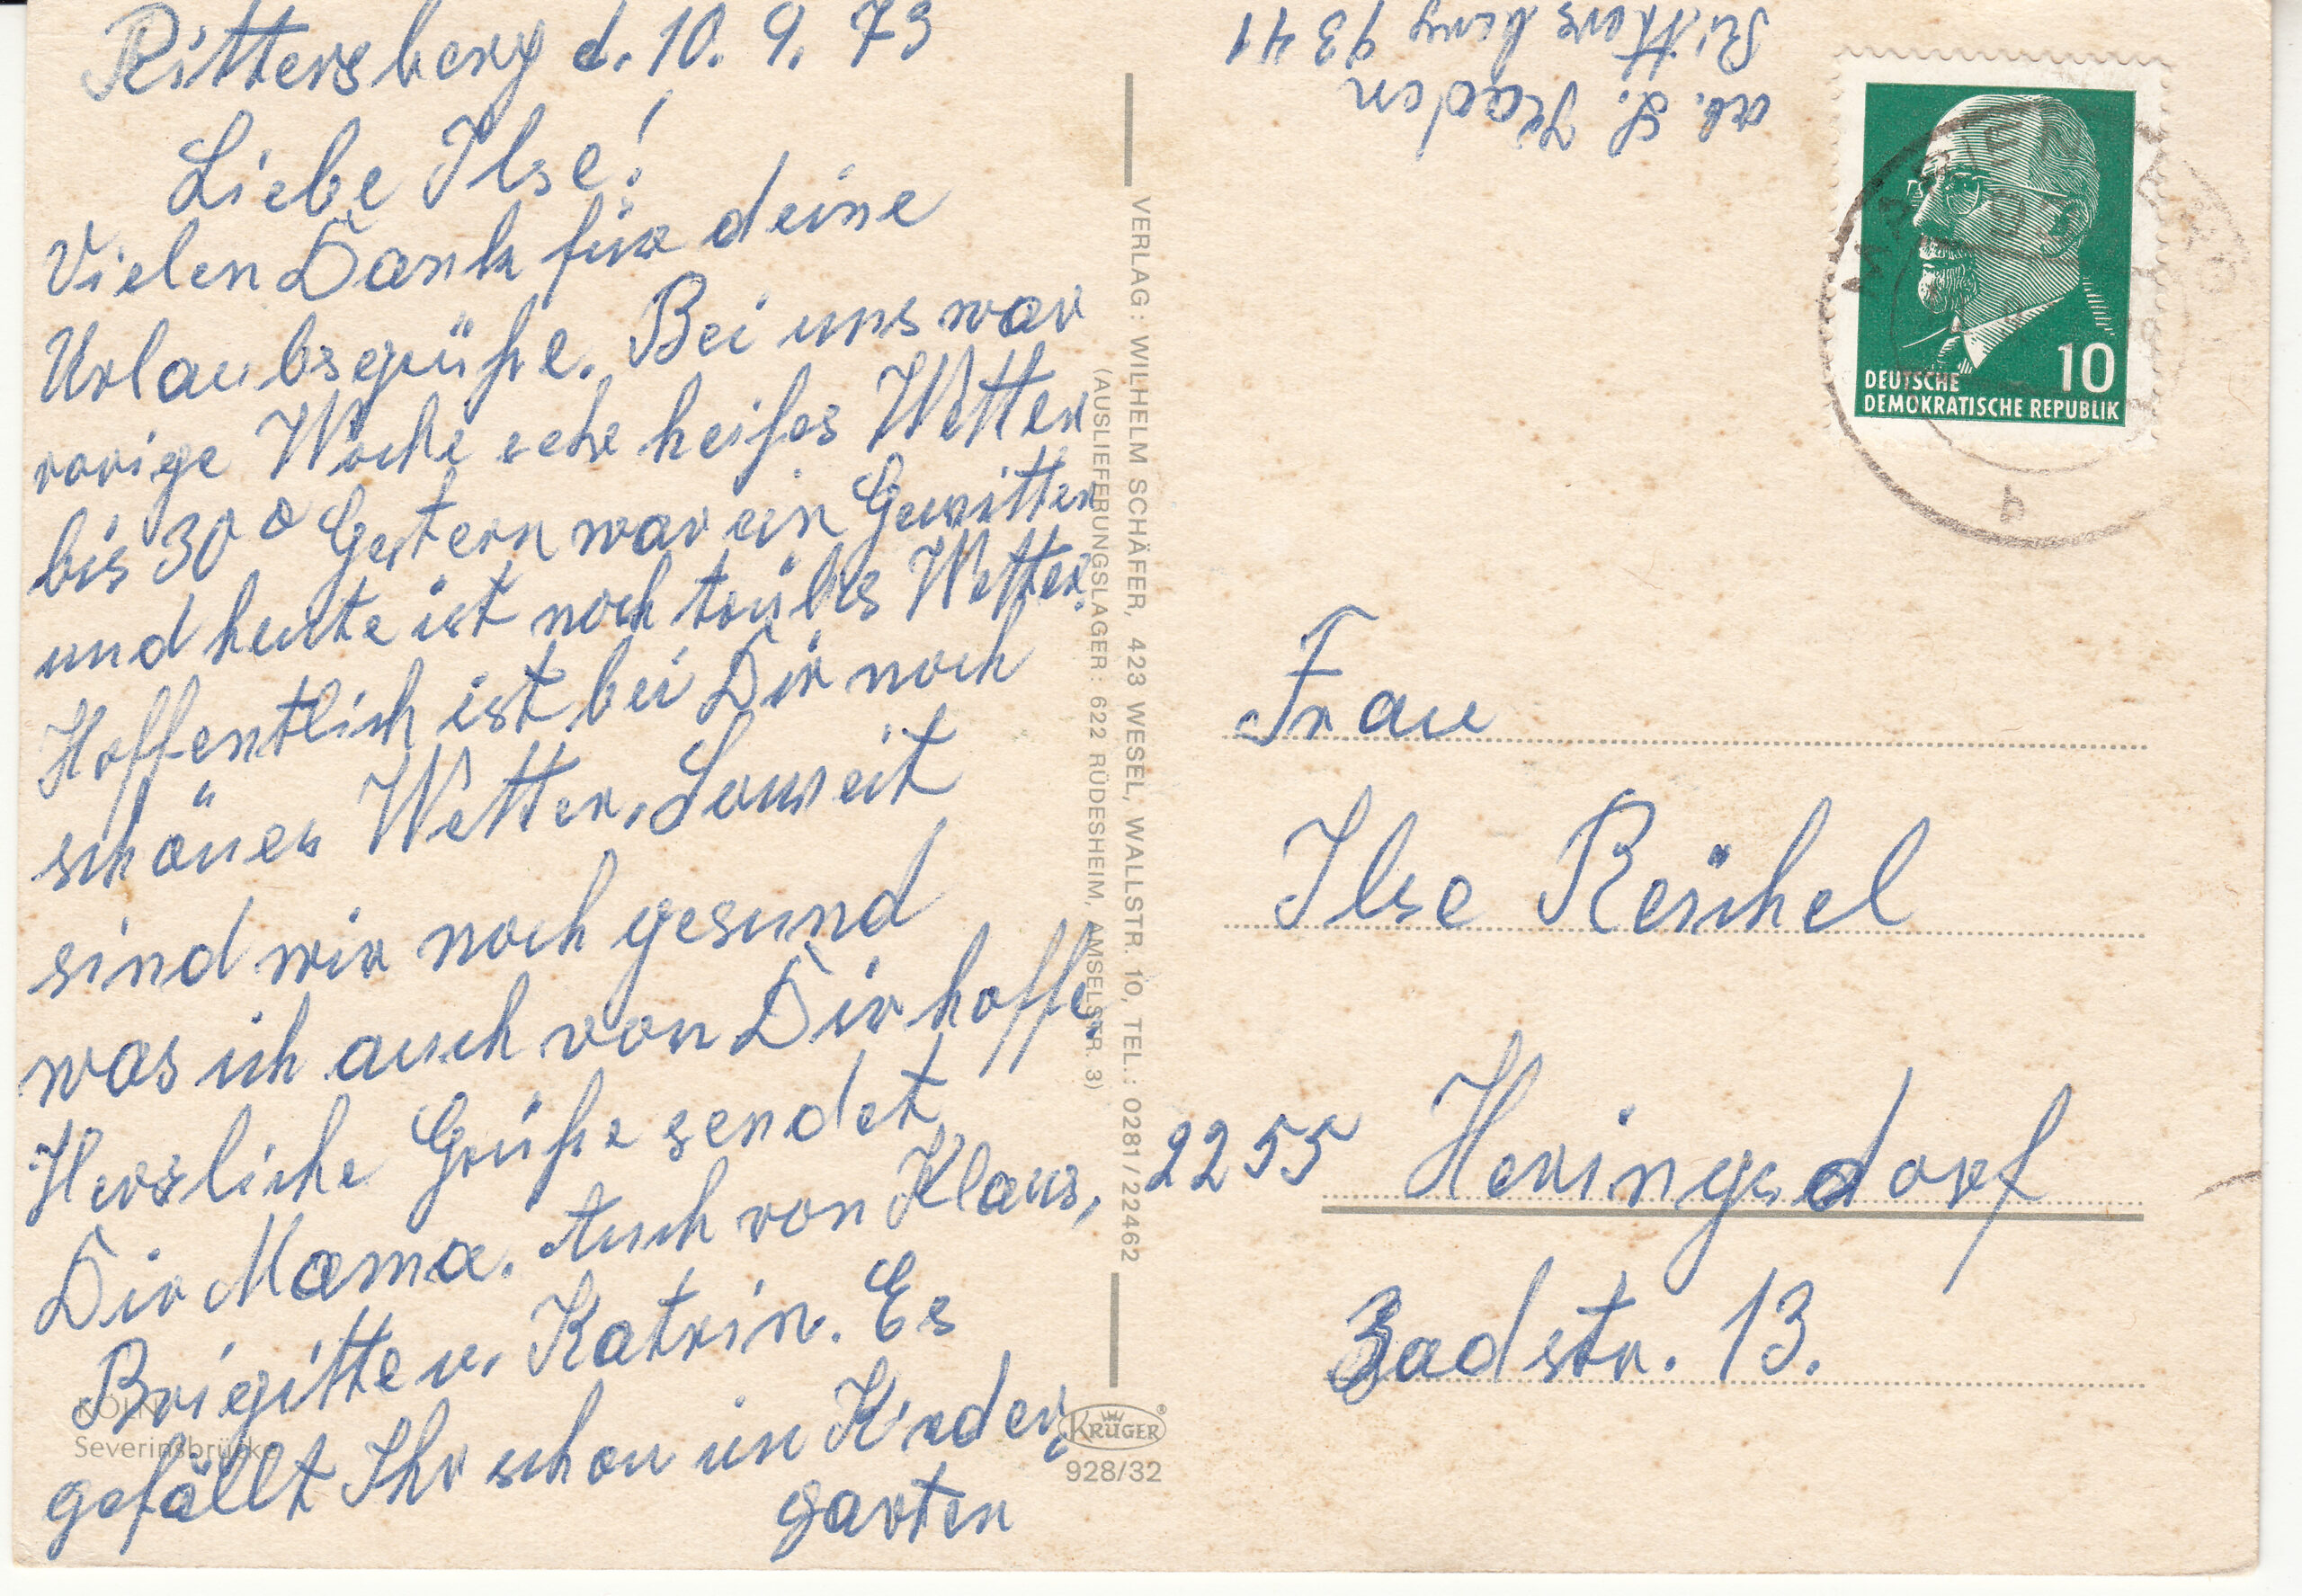 Rittersberg d. 10. 9. 73
Liebe Ilse!
Vielen Dank für deine
Urlaubsgrüße. Bei uns war
vorige Woche sehr heißes Wetter
bis 30° Gestern war ein Gewitter
und heute ist noch trübes Wetter.
Hoffentlich ist bei Dir noch
schönes Wetter. Soweit
sind wir noch gesund
was ich auch von Dir hoffe.
Herzliche Grüße sendet
Dir Mama. Auch von Klaus,
Brigitte u. Katrin. Es
gefällt Ihr schon im Kinder,
garten
KÖLN
Severinsbrücke
VERLAG: WILHELM SCHÄFER, 423 WESEL, WALLSTR. 10, TEL.: 0281/22462
(AUSLIEFERUNGSLAGER: 622 RÜDESHEIM, AMSELSTR. 3)
KRÜGER
928/32
ab. L. Kaden
Rittersberg 9341
10
DEUTSCHE
DEMOKRATISCHE REPUBLIK
Frau
Ilse Reichel
2255 Heringsdorf
Badstr. 13.